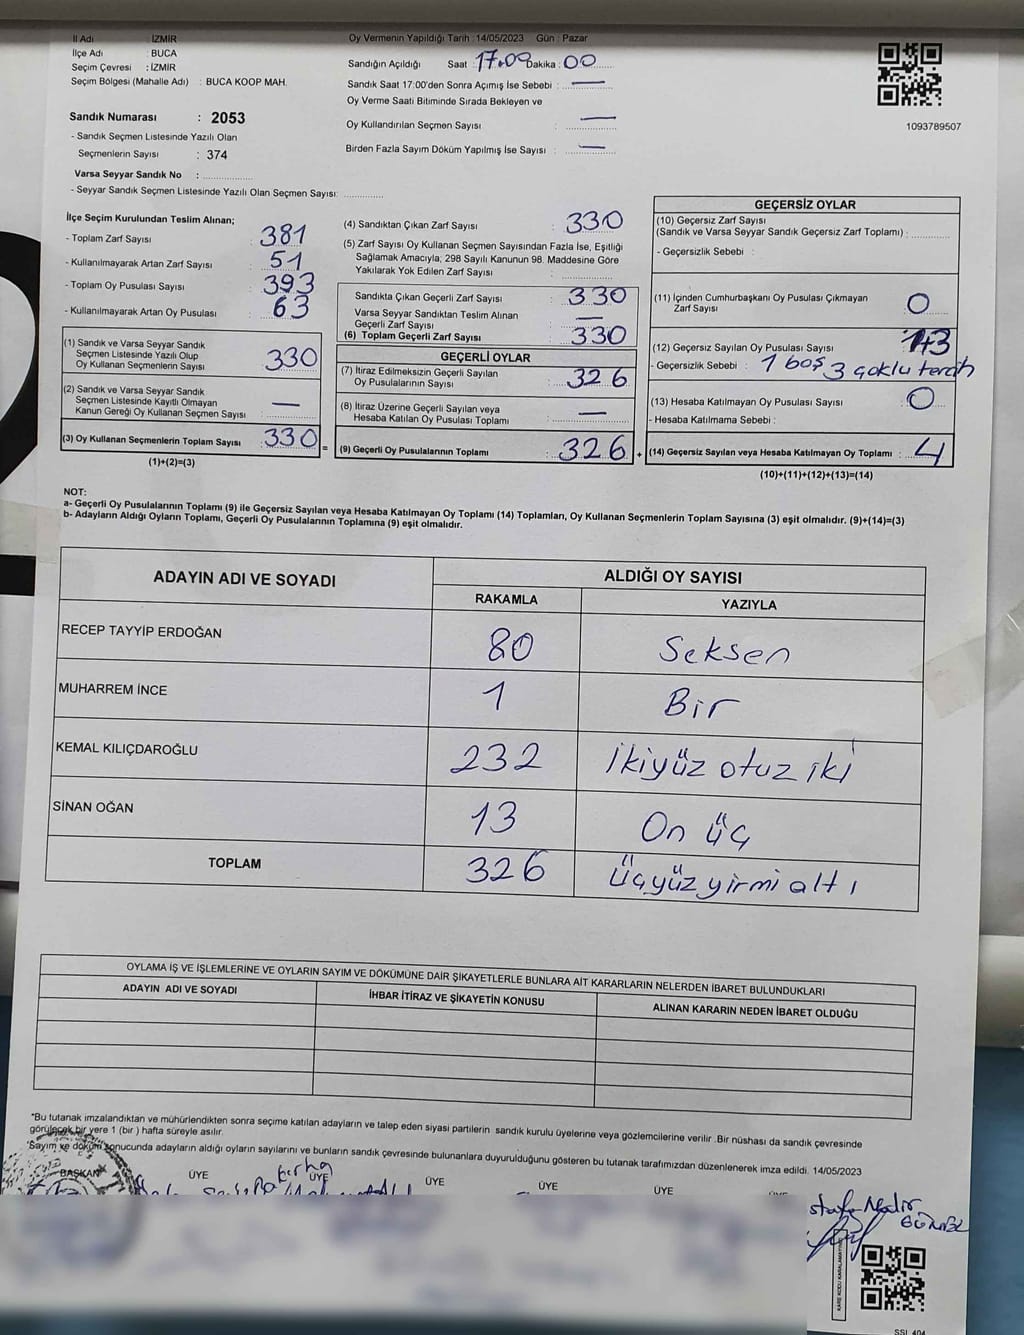 İl Adı : İZMİR
İlçe Adı : BUCA
Seçim Çevresi : İZMİR
Seçim Bölgesi (Mahalle Adı) : BUCA KOOP MAH.
Sandık Numarası : 2053
- Sandık Seçmen Listesinde Yazılı Olan
Seçmenlerin Sayısı : 374
Varsa Seyyar Sandık No :
- Seyyar Sandık Seçmen Listesinde Yazılı Olan Seçmen Sayısı:
Oy Vermenin Yapıldığı Tarih : 14/05/2023 Gün : Pazar
Sandığın Açıldığı Saat : 17.00 Dakika : 00
Sandık Saat 17:00'den Sonra Açımış İse Sebebi : —
Oy Verme Saati Bitiminde Sırada Bekleyen ve
Oy Kullandırılan Seçmen Sayısı : —
Birden Fazla Sayım Döküm Yapılmış İse Sayısı : —
1093789507
İlçe Seçim Kurulundan Teslim Alınan;
- Toplam Zarf Sayısı : 381
- Kullanılmayarak Artan Zarf Sayısı : 51
- Toplam Oy Pusulası Sayısı : 393
- Kullanılmayarak Artan Oy Pusulası : 63
(1) Sandık ve Varsa Seyyar Sandık
Seçmen Listesinde Yazılı Olup
Oy Kullanan Seçmenlerin Sayısı : 330
(2) Sandık ve Varsa Seyyar Sandık
Seçmen Listesinde Kayıtlı Olmayan
Kanun Gereği Oy Kullanan Seçmen Sayısı : —
(3) Oy Kullanan Seçmenlerin Toplam Sayısı : 330 =
(1)+(2)=(3)
(4) Sandıktan Çıkan Zarf Sayısı : 330
(5) Zarf Sayısı Oy Kullanan Seçmen Sayısından Fazla İse, Eşitliği
Sağlamak Amacıyla; 298 Sayılı Kanunun 98. Maddesine Göre
Yakılarak Yok Edilen Zarf Sayısı :
Sandıkta Çıkan Geçerli Zarf Sayısı : 330
Varsa Seyyar Sandıktan Teslim Alınan
Geçerli Zarf Sayısı : —
(6) Toplam Geçerli Zarf Sayısı : 330
GEÇERLİ OYLAR
(7) İtiraz Edilmeksizin Geçerli Sayılan
Oy Pusulalarının Sayısı : 326
(8) İtiraz Üzerine Geçerli Sayılan veya
Hesaba Katılan Oy Pusulası Toplamı : —
(9) Geçerli Oy Pusulalarının Toplamı : 326 +
GEÇERSİZ OYLAR
(10) Geçersiz Zarf Sayısı
(Sandık ve Varsa Seyyar Sandık Geçersiz Zarf Toplamı) :
- Geçersizlik Sebebi :
(11) İçinden Cumhurbaşkanı Oy Pusulası Çıkmayan
Zarf Sayısı : 0
(12) Geçersiz Sayılan Oy Pusulası Sayısı :
- Geçersizlik Sebebi : 1 boş 3 çoklu tercih
(13) Hesaba Katılmayan Oy Pusulası Sayısı : 0
- Hesaba Katılmama Sebebi :
(14) Geçersiz Sayılan veya Hesaba Katılmayan Oy Toplamı : 4
(10)+(11)+(12)+(13)=(14)
NOT:
a- Geçerli Oy Pusulalarının Toplamı (9) ile Geçersiz Sayılan veya Hesaba Katılmayan Oy Toplamı (14) Toplamları, Oy Kullanan Seçmenlerin Toplam Sayısına (3) eşit olmalıdır. (9)+(14)=(3)
b- Adayların Aldığı Oyların Toplamı, Geçerli Oy Pusulalarının Toplamına (9) eşit olmalıdır.
ADAYIN ADI VE SOYADI ALDIĞI OY SAYISI
RAKAMLA YAZIYLA
RECEP TAYYİP ERDOĞAN 80 Seksen
MUHARREM İNCE 1 Bir
KEMAL KILIÇDAROĞLU 232 İkiyüz otuz iki
SİNAN OĞAN 13 On üç
TOPLAM 326 Üçyüz yirmi altı
OYLAMA İŞ VE İŞLEMLERİNE VE OYLARIN SAYIM VE DÖKÜMÜNE DAİR ŞİKAYETLERLE BUNLARA AİT KARARLARIN NELERDEN İBARET BULUNDUKLARI
ADAYIN ADI VE SOYADI İHBAR İTİRAZ VE ŞİKAYETİN KONUSU ALINAN KARARIN NEDEN İBARET OLDUĞU
*Bu tutanak imzalandıktan ve mühürlendikten sonra seçime katılan adayların ve talep eden siyasi partilerin sandık kurulu üyelerine veya gözlemcilerine verilir .Bir nüshası da sandık çevresinde
görülecek bir yere 1 (bir ) hafta süreyle asılır.
*Sayım ve döküm sonucunda adayların aldığı oyların sayılarını ve bunların sandık çevresinde bulunanlara duyurulduğunu gösteren bu tutanak tarafımızdan düzenlenerek imza edildi. 14/05/2023
BAŞKAN ÜYE ÜYE ÜYE ÜYE ÜYE